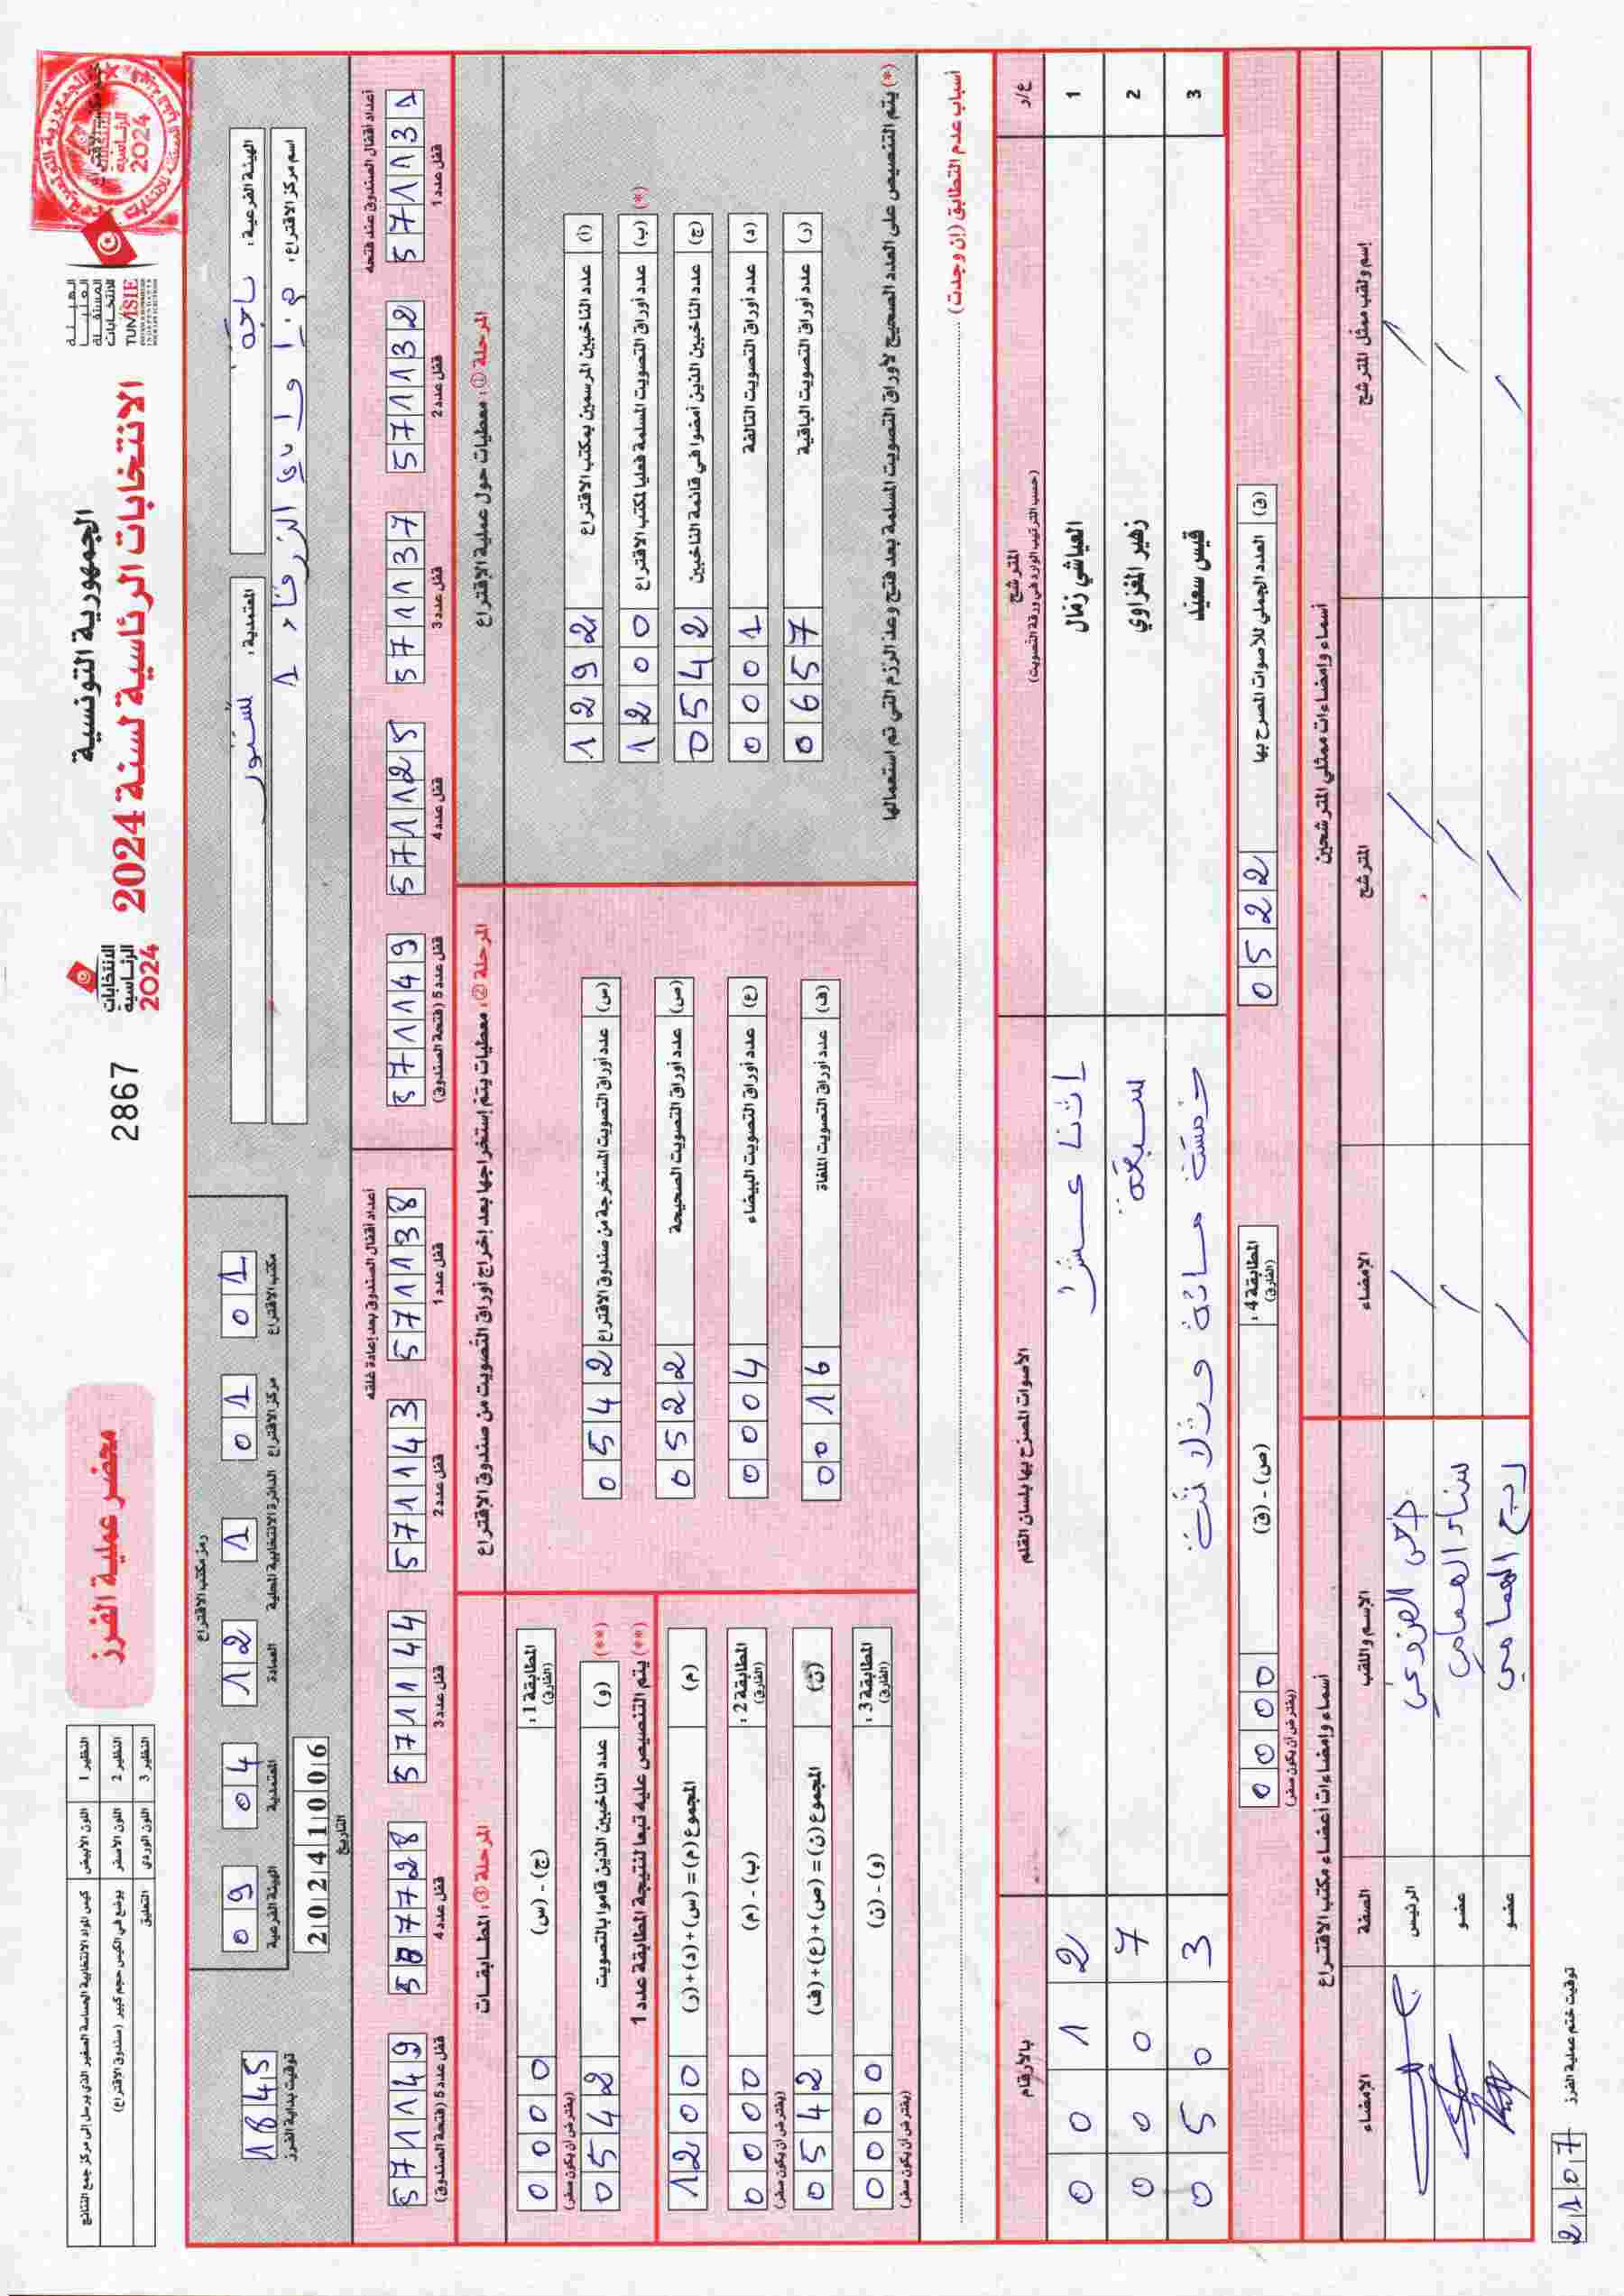 الجمهورية التونسية
الانتخابات الرئاسية لسنة 2024
الهيئة العليا المستقلة للانتخابات
TUNISIE
الانتخابات الرئاسية 2024
2867
محضر عملية الفرز
النظير 1 اللون الأبيض كيس المواد الانتخابية الحساسة الصغير الذي يرسل إلى مركز جمع النتائج
النظير 2 اللون الأصفر يوضع في الكيس حجم كبير (صندوق الاقتراع)
النظير 3 اللون الوردي التعليق
الهيئة الفرعية: باجة
المعتمدية: تستور
اسم مركز الاقتراع: م.إ وادي الزرقاء 1
رمز مكتب الاقتراع
مكتب الاقتراع 01
مركز الاقتراع 01
الدائرة الانتخابية المحلية 1
العمادة 12
المعتمدية 04
الهيئة الفرعية 09
20241006
التاريخ
1845
توقيت بداية الفرز
أعداد أقفال الصندوق عند فتحه
571131 قفل عدد 1
571132 قفل عدد 2
571137 قفل عدد 3
571125 قفل عدد 4
571149 قفل عدد 5 (فتحة الصندوق)
أعداد أقفال الصندوق بعد إعادة غلقه
571138 قفل عدد 1
571143 قفل عدد 2
571144 قفل عدد 3
587728 قفل عدد 4
571149 قفل عدد 5 (فتحة الصندوق)
المرحلة ①: معطيات حول عملية الاقتراع
(أ) عدد الناخبين المرسمين بمكتب الاقتراع 1292
(ب) عدد أوراق التصويت المسلمة فعليا لمكتب الاقتراع 1200 (*)
(ج) عدد الناخبين الذين أمضوا في قائمة الناخبين 0542
(د) عدد أوراق التصويت التالفة 0001
(ر) عدد أوراق التصويت الباقية 0657
(*) يتم التنصيص على العدد الصحيح لأوراق التصويت المسلمة بعد فتح وعد الرزم التي تم استعمالها
المرحلة ②: معطيات يتم إستخراجها بعد إخراج أوراق التصويت من صندوق الاقتراع
(س) عدد أوراق التصويت المستخرجة من صندوق الاقتراع 0542
(ص) عدد أوراق التصويت الصحيحة 0522
(ع) عدد أوراق التصويت البيضاء 0004
(ف) عدد أوراق التصويت الملغاة 0016
المرحلة ③: المطابقات
المطابقة 1: (الفارق) (ج) - (س) 0000
(يفترض أن يكون صفر)
(**) (و) عدد الناخبين الذين قاموا بالتصويت 0542
(**) يتم التنصيص عليه تبعا لنتيجة المطابقة عدد 1
(م) المجموع (م) = (س)+(د)+(ر) 1200
المطابقة 2: (الفارق) (ب) - (م) 0000
(يفترض أن يكون صفر)
(ن) المجموع (ن) = (ص)+(ع)+(ف) 0542
المطابقة 3: (الفارق) (و) - (ن) 0000
(يفترض أن يكون صفر)
أسباب عدم التطابق (إن وجدت)
ع/ر المترشح (حسب الترتيب الوارد في ورقة التصويت) الأصوات المصرّح بها بلسان القلم بالأرقام
1 العياشي زمّال اثنا عشر 0012
2 زهير المغزاوي سبعة 0007
3 قيس سعيّد خمسة مائة وثلاثة 0503
(ق) العدد الجملي للأصوات المصرح بها 0522
المطابقة 4: (الفارق) (ص) - (ق) 0000
(يفترض أن يكون صفر)
أسماء وإمضاءات ممثلي المترشحين
إسم ولقب ممثل المترشح المترشح الإمضاء
أسماء وإمضاءات أعضاء مكتب الاقتراع
الإسم واللقب الصفة الإمضاء
الرئيس
عضو
ربح الهمامي عضو
توقيت ختم عملية الفرز 2107